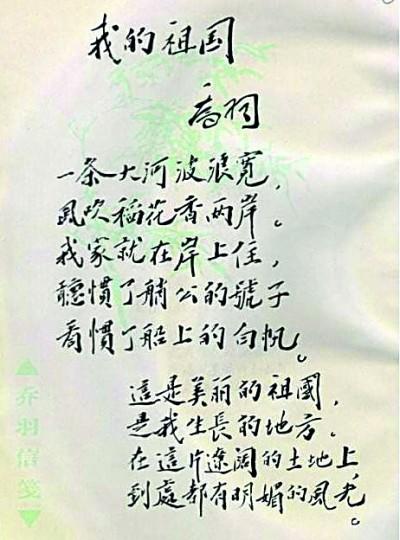 我的祖国
乔羽
一条大河波浪宽，
風吹稻花香两岸。
我家就在岸上住，
聽慣了艄公的號子
看慣了船上的白帆。
這是美丽的祖國，
是我生長的地方。
在這片遼阔的土地上，
到處都有明媚的風光。
乔羽信笺